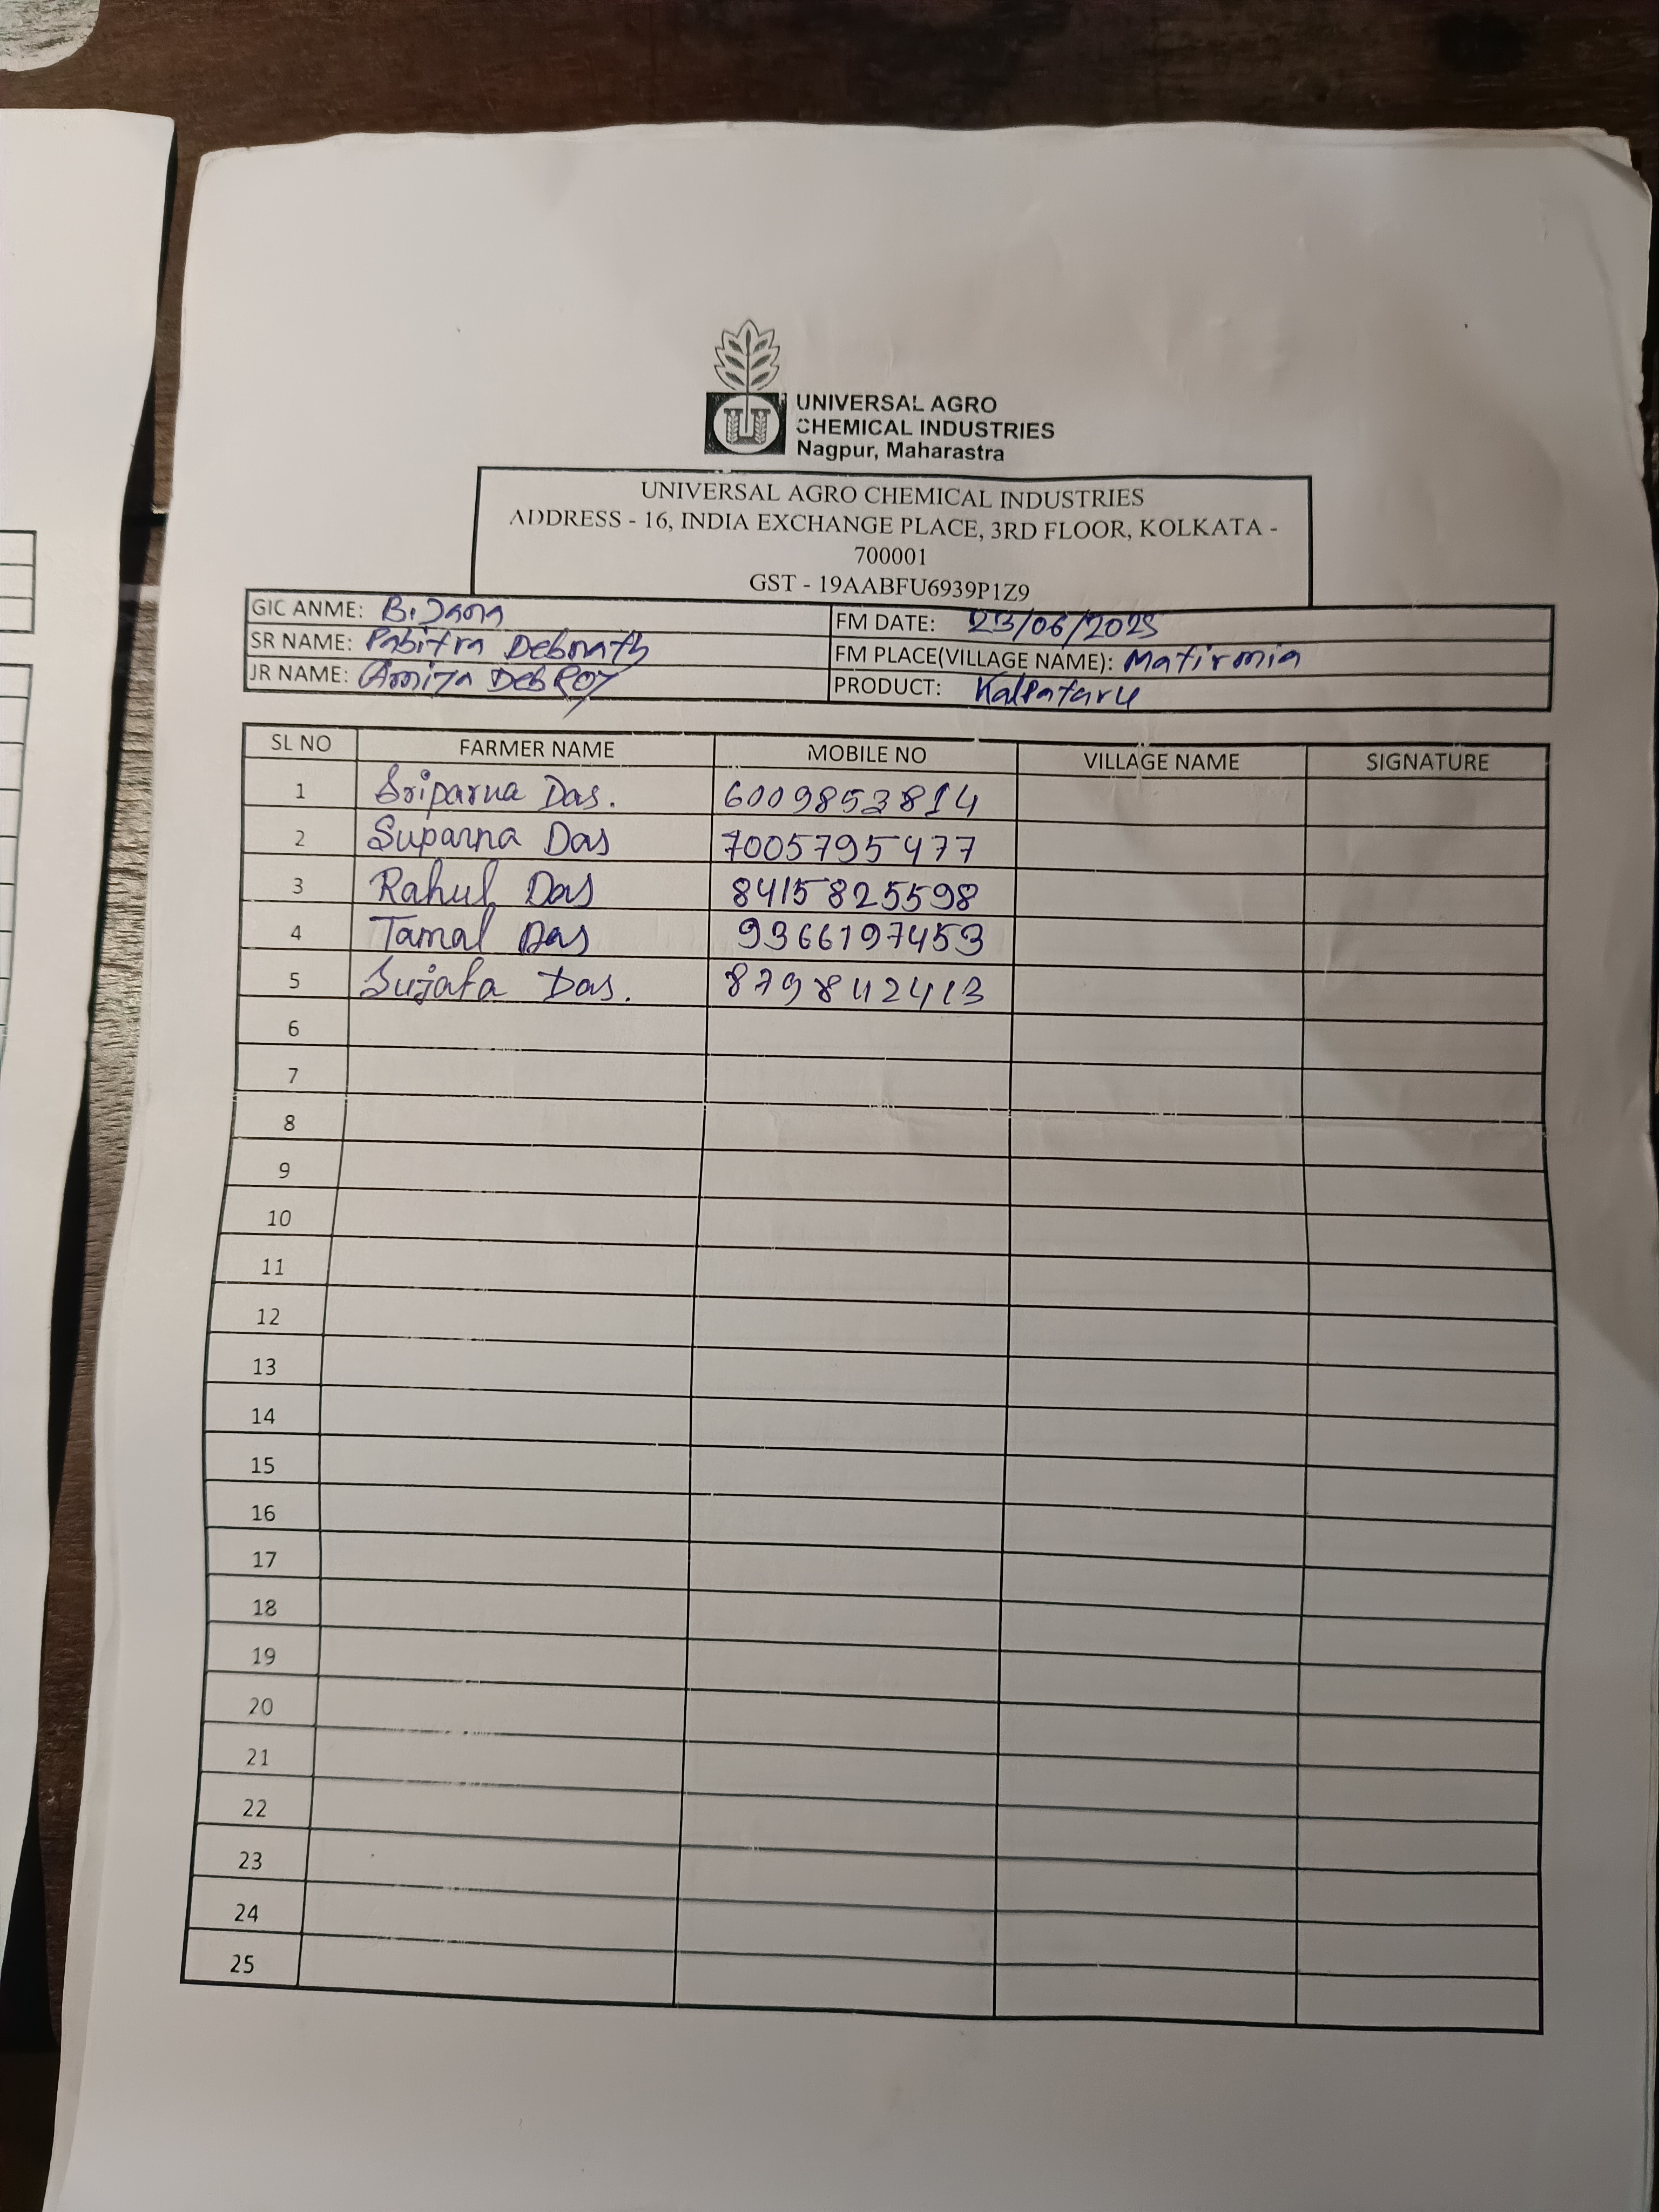 UNIVERSAL AGRO
CHEMICAL INDUSTRIES
Nagpur, Maharastra
UNIVERSAL AGRO CHEMICAL INDUSTRIES
ADDRESS - 16, INDIA EXCHANGE PLACE, 3RD FLOOR, KOLKATA -
700001
GST - 19AABFU6939P1Z9
GIC ANME: B. Jana FM DATE: 23/06/2025
SR NAME: Pabitra Debnath FM PLACE(VILLAGE NAME): Matirmia
JR NAME: DEBROY PRODUCT: Kalpataru
SL NO FARMER NAME MOBILE NO VILLAGE NAME SIGNATURE
1 Sriparna Das. 6009853814
2 Suparna Das 7005795477
3 Rahul Das 8415825598
4 Tamal Das 9366197453
5 Sujata Das. 879842413
6
7
8
9
10
11
12
13
14
15
16
17
18
19
20
21
22
23
24
25